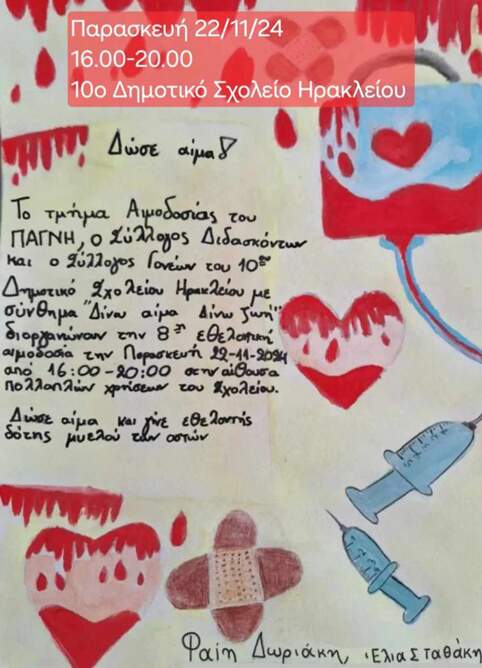 Παρασκευή 22/11/24
16.00-20.00
10ο Δημοτικό Σχολείο Ηρακλείου
Δώσε αίμα!
Το τμήμα Αιμοδοσίας του
ΠΑΓΝΗ, ο Σύλλογος Διδασκόντων
και ο Σύλλογος Γονέων του 10ου
Δημοτικό Σχολείου Ηρακλείου με
σύνθημα "Δίνω αίμα Δίνω ζωή"
διοργανώνουν την 8η εθελοντική
αιμοδοσία την Παρασκευή 22-11-2024
από 16:00-20:00 στην αίθουσα
πολλαπλών χρήσεων του Σχολείου.
Δώσε αίμα και γίνε εθελοντής
δότης μυελού των οστών
Φαίη Δωριάκη, Έλια Σταθάκη